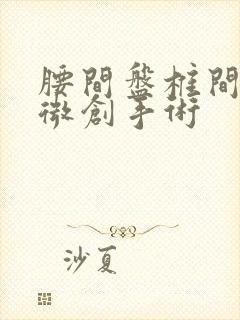 腰間盤柱間
微創手術
沙夏